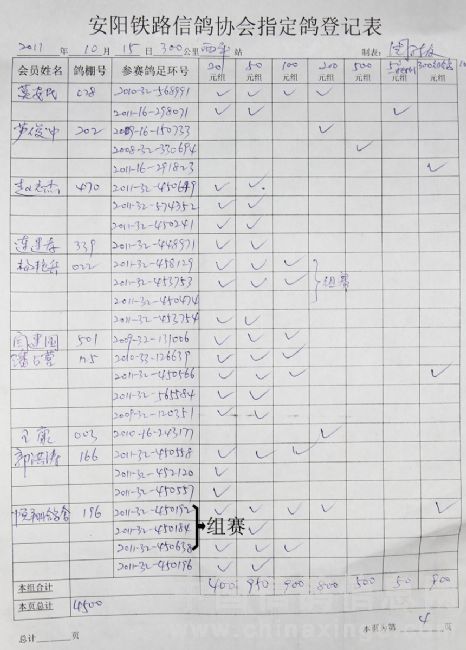 安阳铁路信鸽协会指定鸽登记表
2011 年 10 月 15 日 300公里 西平 站 制表:
会员姓名 鸽棚号 参赛鸽足环号 20元组 50元组 100元组 200元组 500元组
028 2010-32-568991 ✓ ✓ ✓ ✓
2011-16-298071 ✓ ✓ ✓
202 2009-16-150733 ✓
2008-32-330694 ✓
2011-16-291823 ✓
470 2011-32-450649 ✓ ✓
2011-32-574352 ✓ ✓
2011-32-450241 ✓ ✓
339 2011-32-448971 ✓ ✓
022 2011-32-458129 ✓ ✓ ✓
2011-32-453753 ✓ ✓ ✓ 组赛
2011-32-450474
2011-32-453754 ✓ ✓
501 2009-32-131006 ✓ ✓ ✓
115 2010-33-126639 ✓ ✓ ✓
2011-32-450566 ✓ ✓ ✓ ✓
2011-32-565584 ✓ ✓
2009-32-120351 ✓ ✓
003 2010-16-243177 ✓
郭洪涛 166 2011-32-450558 ✓ ✓ ✓
2011-32-452120 ✓
2011-32-450557 ✓
196 2011-32-450192 ✓ ✓ ✓ ✓ ✓
2011-32-450184 组赛 ✓
2011-32-450638 ✓ ✓ ✓
2011-32-450196 ✓ ✓
本组合计 400 950 900 800 500 50 900
本页总计 4500
总计 页 本页为第 4 页